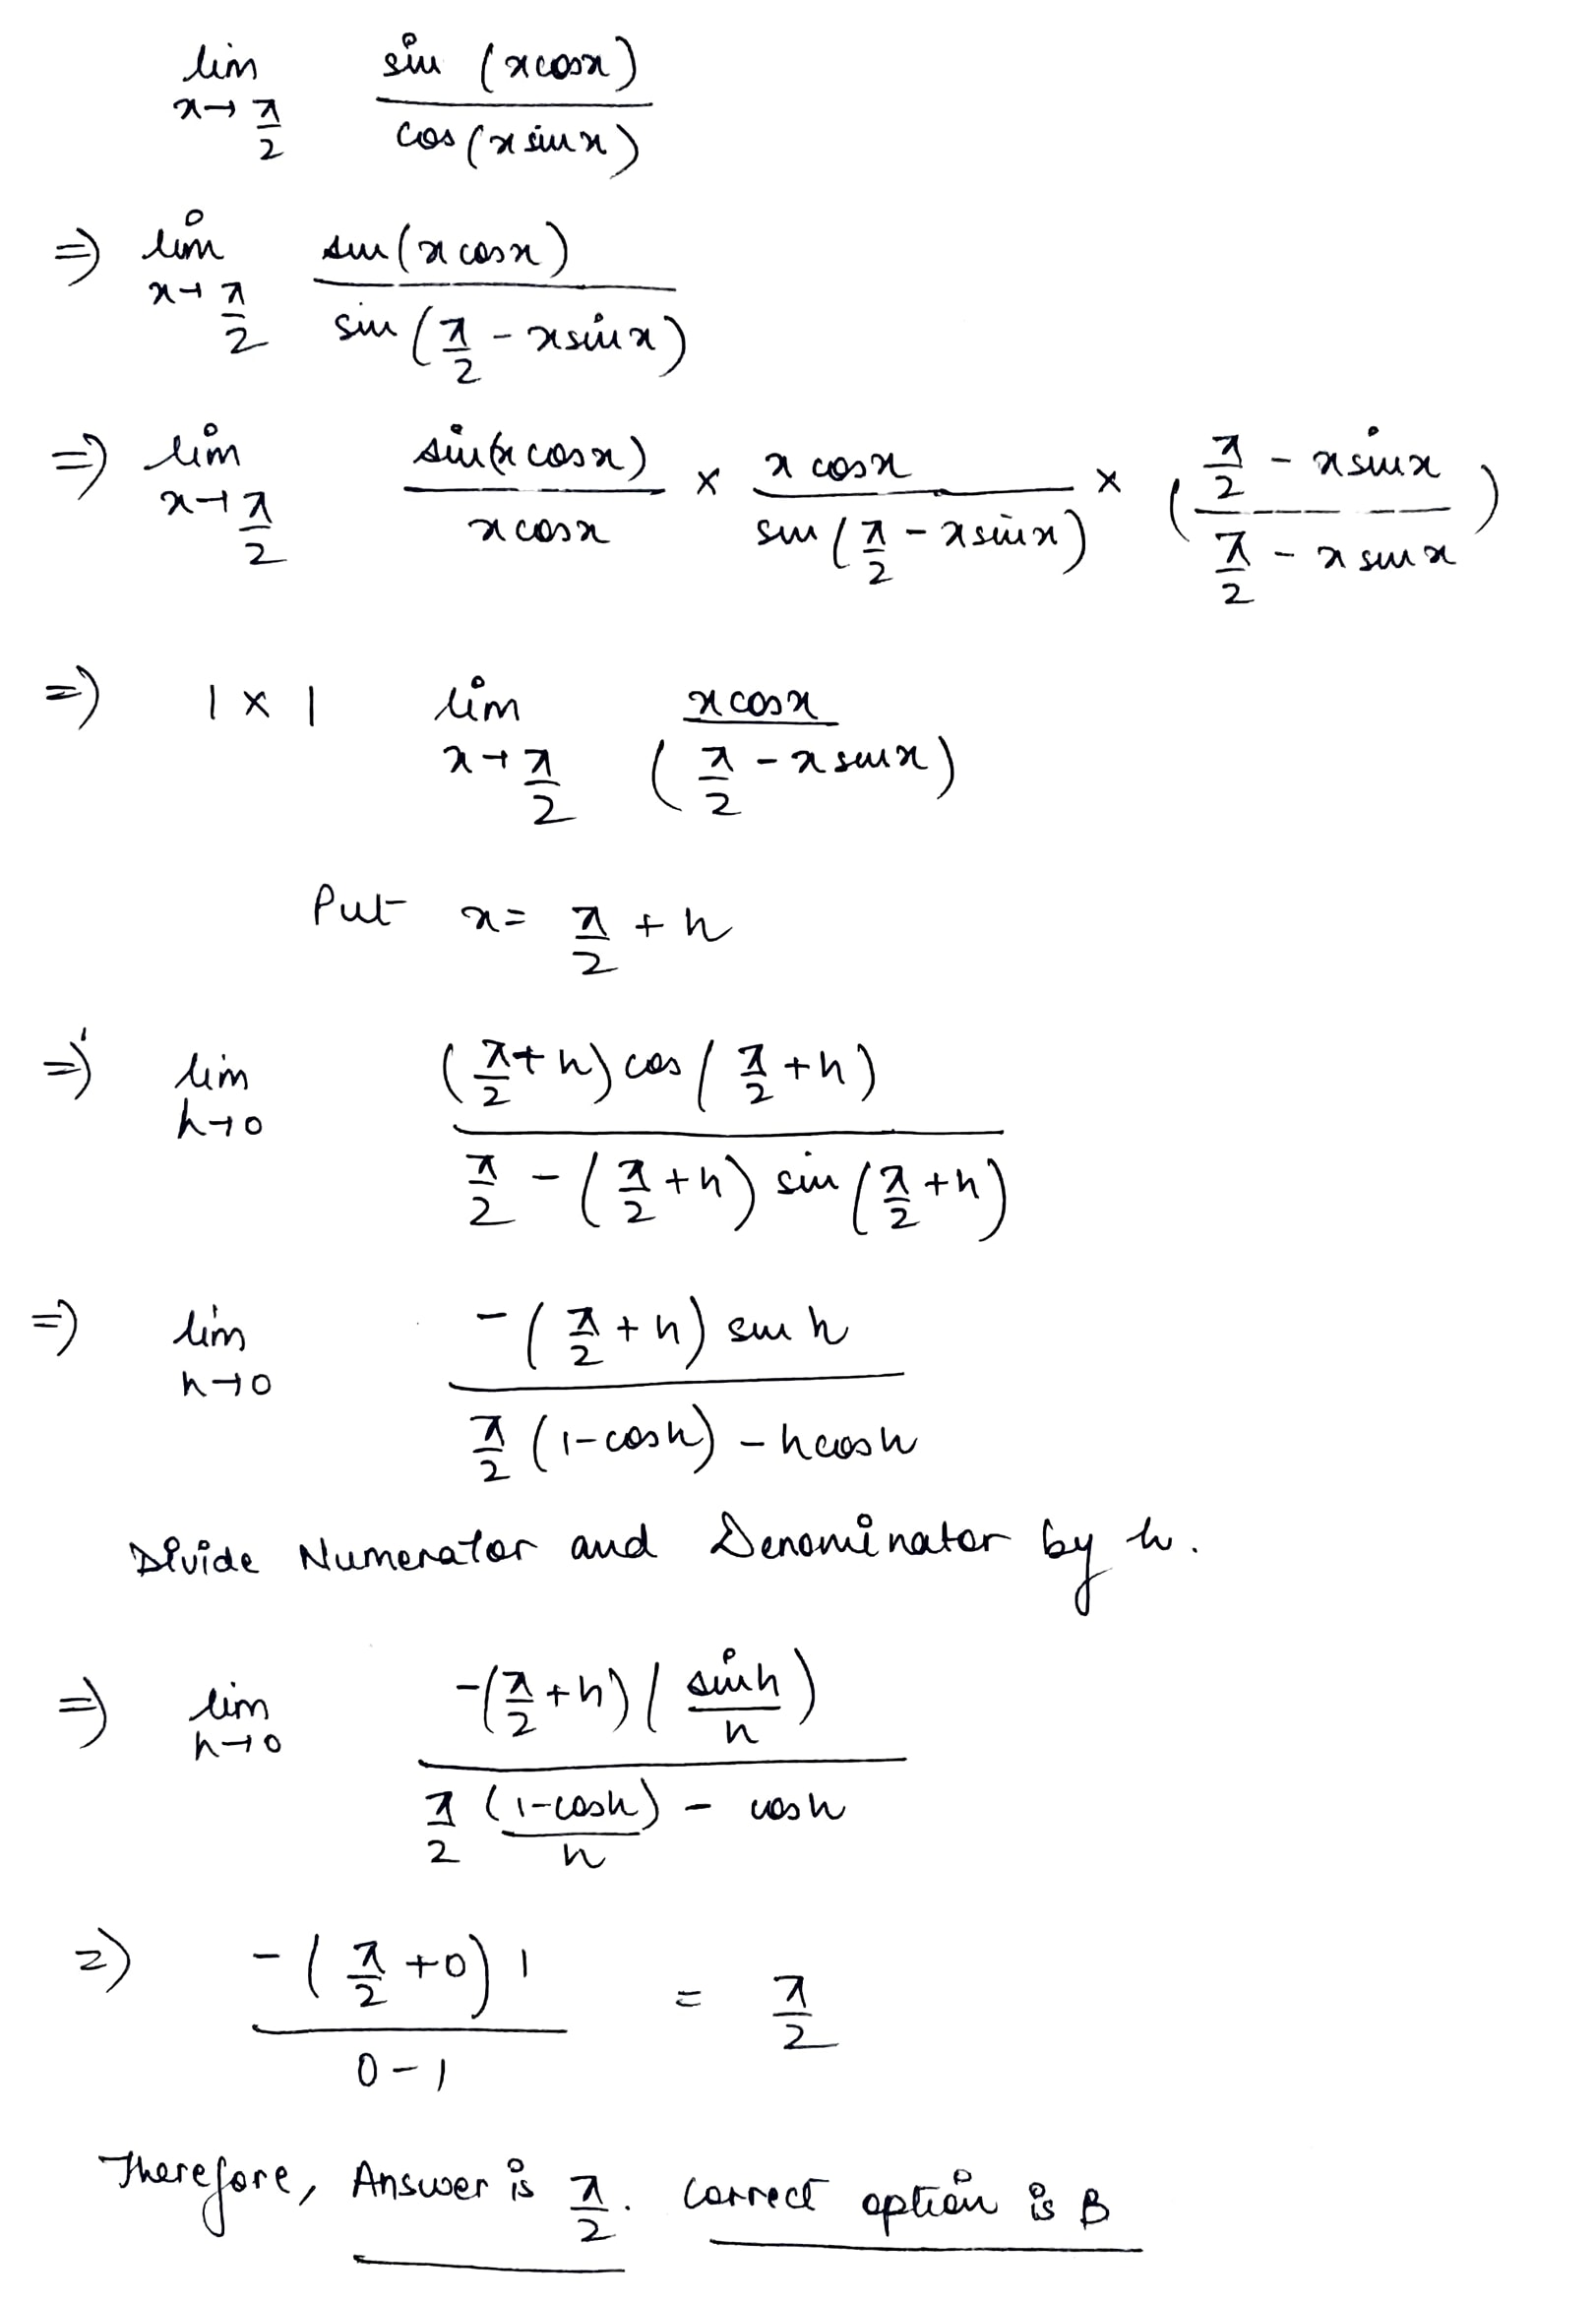 lim x→π/2 sin (x cosx) / cos (x sinx)
⇒ lim x→π/2 sin(x cosx) / sin(π/2 - x sinx)
⇒ lim x→π/2 sin(x cosx) / x cosx × x cosx / sin(π/2 - x sinx) × (π/2 - x sinx / π/2 - x sinx)
⇒ 1 × 1 lim x→π/2 x cosx / (π/2 - x sinx)
Put x = π/2 + h
⇒ lim h→0 (π/2 + h) cos(π/2 + h) / π/2 - (π/2 + h) sin(π/2 + h)
⇒ lim h→0 -(π/2 + h) sin h / π/2 (1 - cosh) - h cosh
Divide Numerator and Denominator by h.
⇒ lim h→0 -(π/2 + h) (sinh / h) / π/2 (1 - cosh) / h - cosh
⇒ -(π/2 + 0) 1 / 0 - 1 = π/2
Therefore, Answer is π/2. Correct option is B